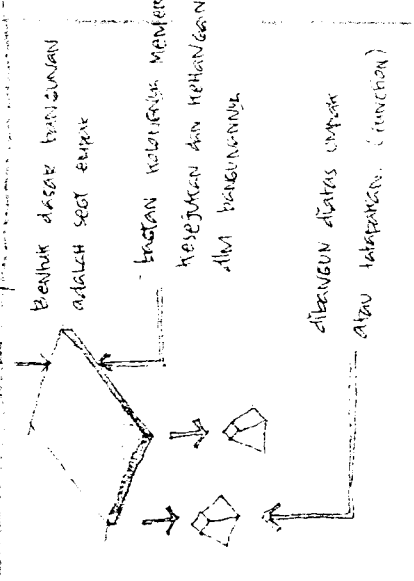 BENTUK dasar BANGUNAN
adalah SEGI EMPAT
KESEJUKAN dan KEHANGATAN
dlm BANGUNANNYA
dibangun diatas UMPAK
atau tatapakan. (function)